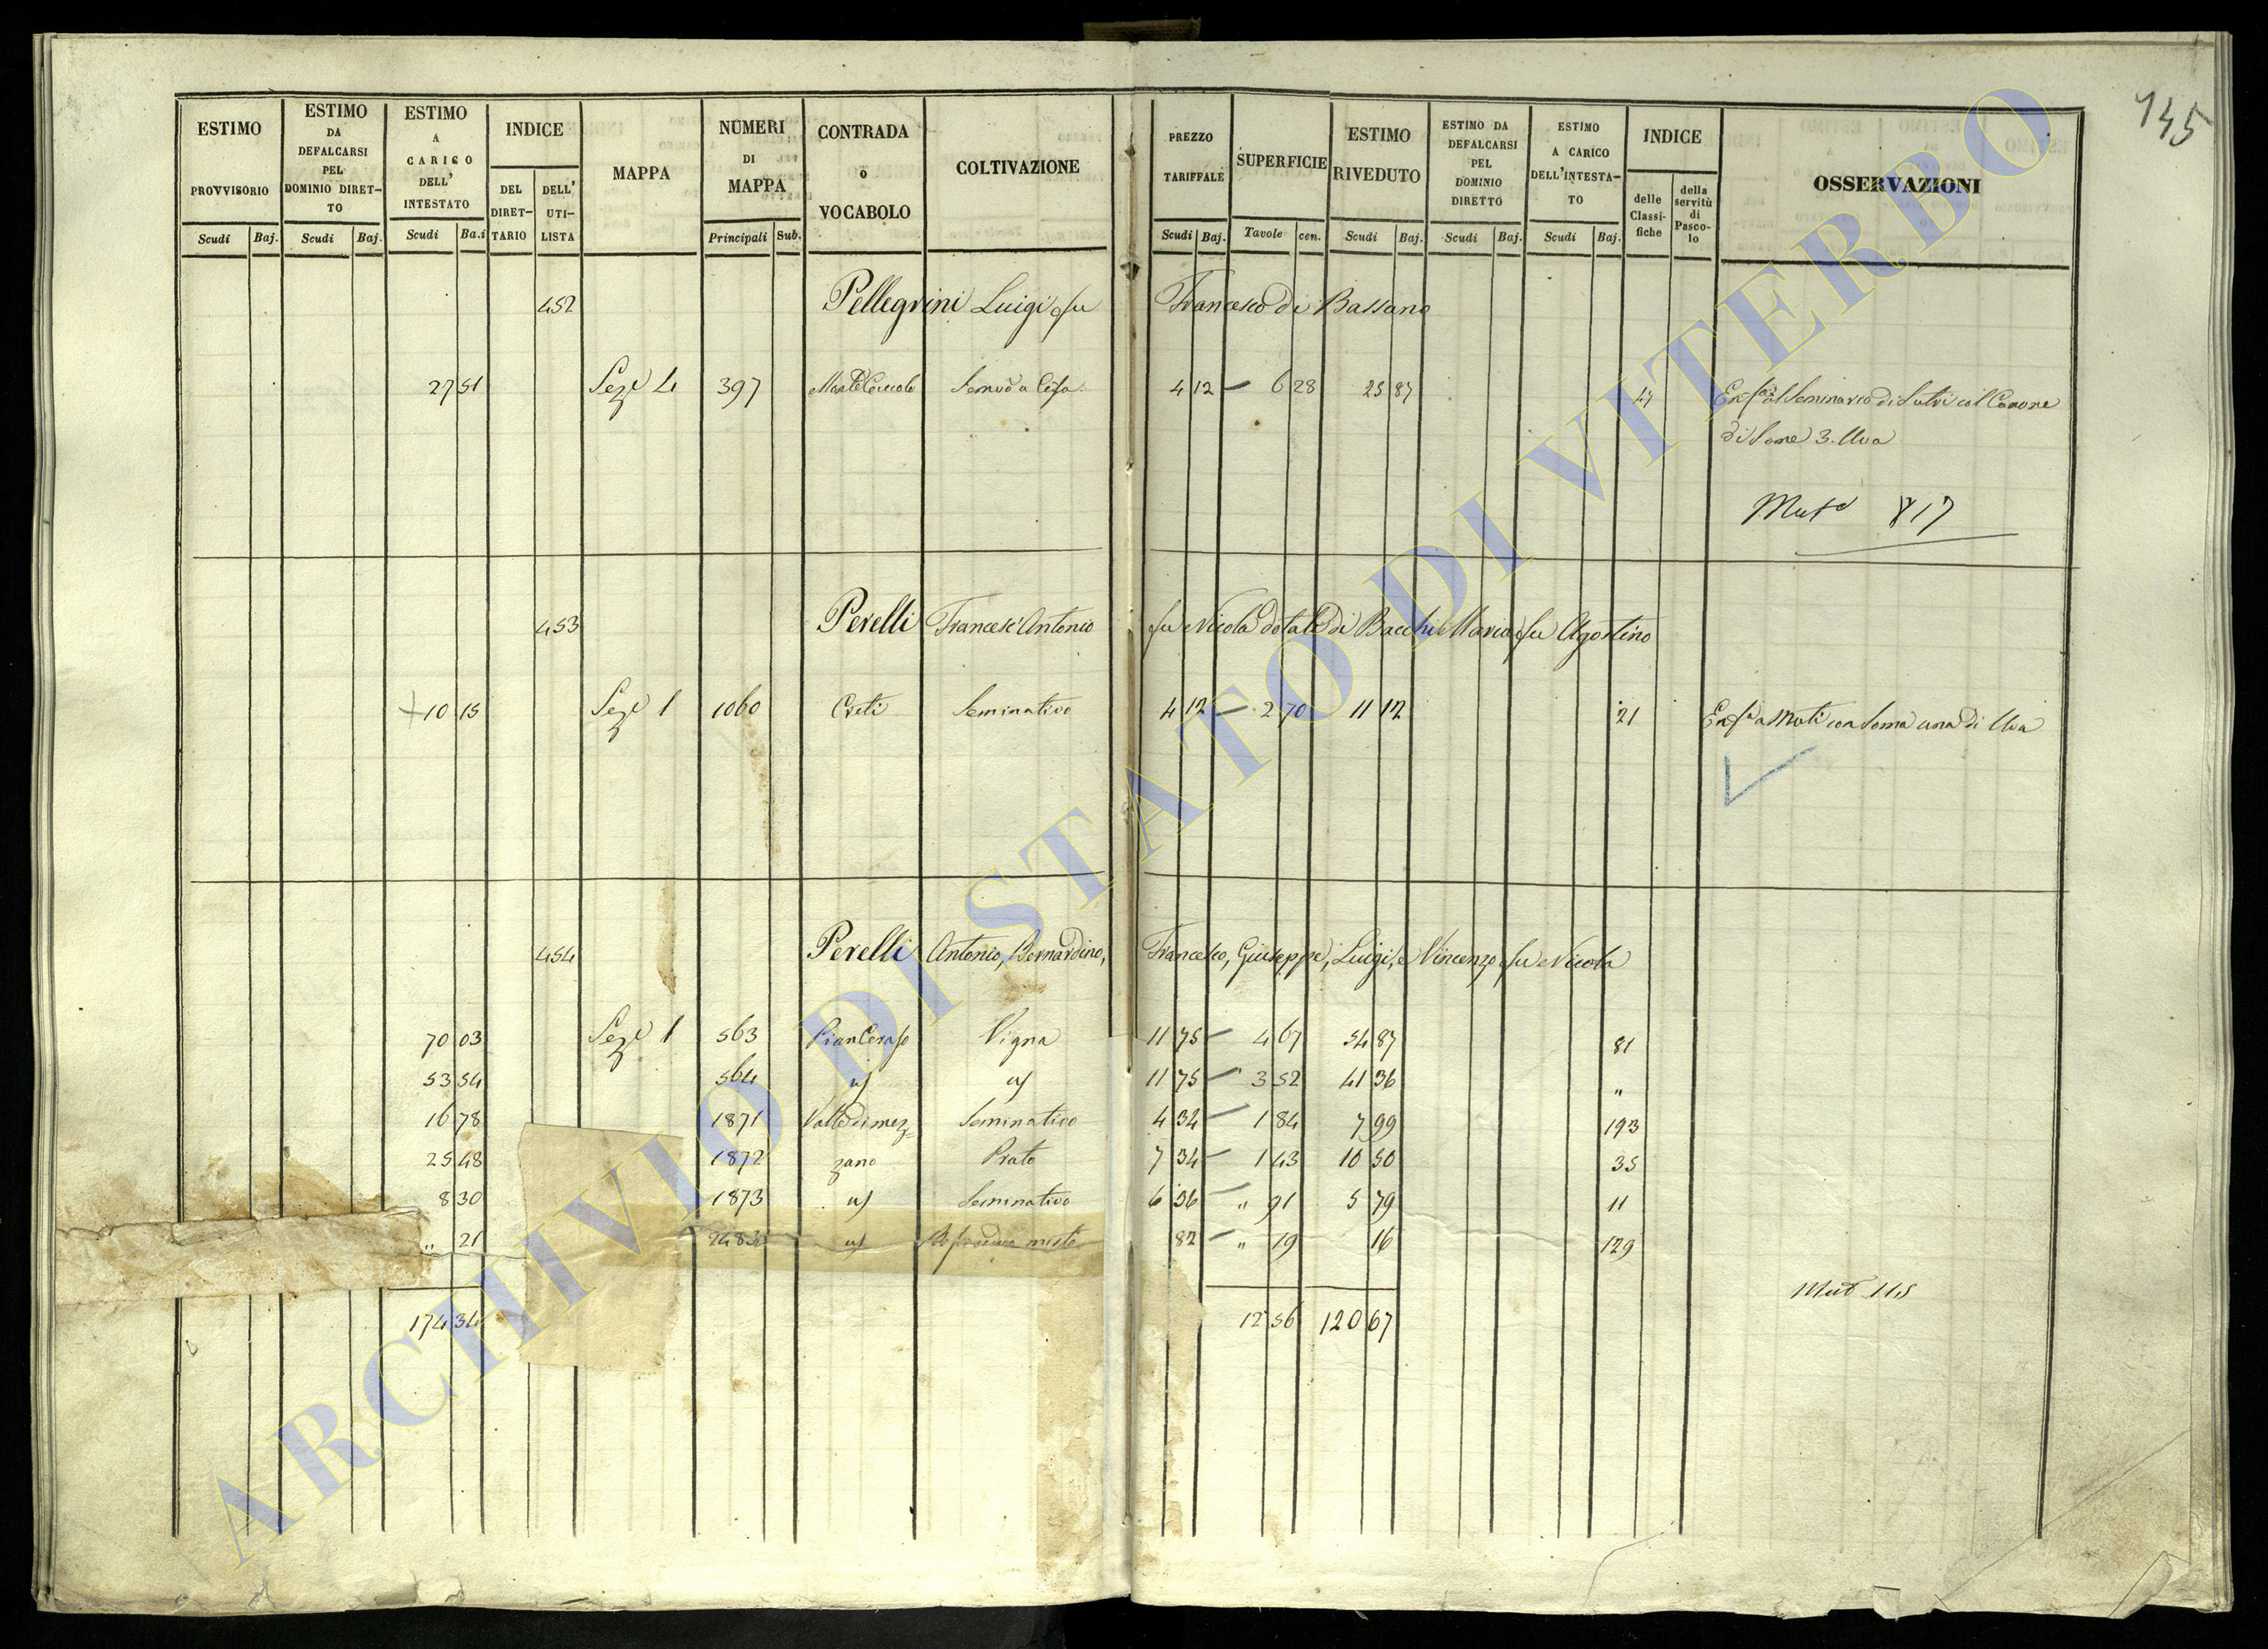 145
ESTIMO PROVVISORIO
ESTIMO DA DEFALCARSI PEL DOMINIO DIRET-TO
ESTIMO A CARICO DELL' INTESTATO
INDICE
DEL DIRET-TARIO
DELL' UTI-LISTA
MAPPA
NUMERI DI MAPPA
CONTRADA o VOCABOLO
COLTIVAZIONE
PREZZO TARIFFALE
SUPERFICIE
ESTIMO RIVEDUTO
ESTIMO DA DEFALCARSI PEL DOMINIO DIRETTO
ESTIMO A CARICO DELL'INTESTA-TO
INDICE
delle Classi-fiche
della servitù di Pasco-lo
OSSERVAZIONI
Scudi Baj. Scudi Baj. Scudi Ba.i Principali Sub. Scudi Baj. Tavole cen. Scudi Baj. Scudi Baj. Scudi Baj.
452 Pellegrini Luigi fu Francesco di Bassano
27 51 Seze 4 397 4 12 6 28 25 87 47 al Seminario di Sutri col Canone
di Some 3. Uva
Mut 817
453 Perelli Francesc'Antonio fu Nicola dotale di Bacchi Maria fu Agostino
10 15 Seze 1 1060 Creti Seminativo 4 12 2 70 11 12 21 a Muti con Soma una di Uva
454 Perelli Antonio, Bernardino, Francesco, Giuseppe, Luigi, e Vincenzo fu Nicola
70 03 Seze 1 563 Pian Ceraso Vigna 11 75 4 67 54 87 81
53 54 564 11 75 3 52 41 36 "
16 78 1871 Valle di mez= Seminativo 4 34 1 84 7 99 193
25 48 1872 zano Prato 7 34 1 43 10 50 35
8 30 1873 Seminativo 6 36 " 91 5 79 11
" 21 misto 82 " 19 16 129
Mut 115
174 34 12 56 120 67
ARCHIVIO DI STATO DI VITERBO